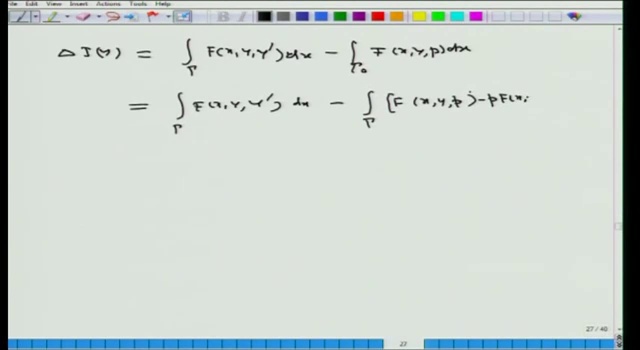 Edit View Insert Actions Tools Help
Δ J(Y) = ∫_Γ F(x,Y,Y')dx − ∫_Γ₀ F(x,Y,p)dx
= ∫_Γ F(x,Y,Y') dx − ∫_Γ [F(x,Y,p)−pF(x,
27 / 40
27